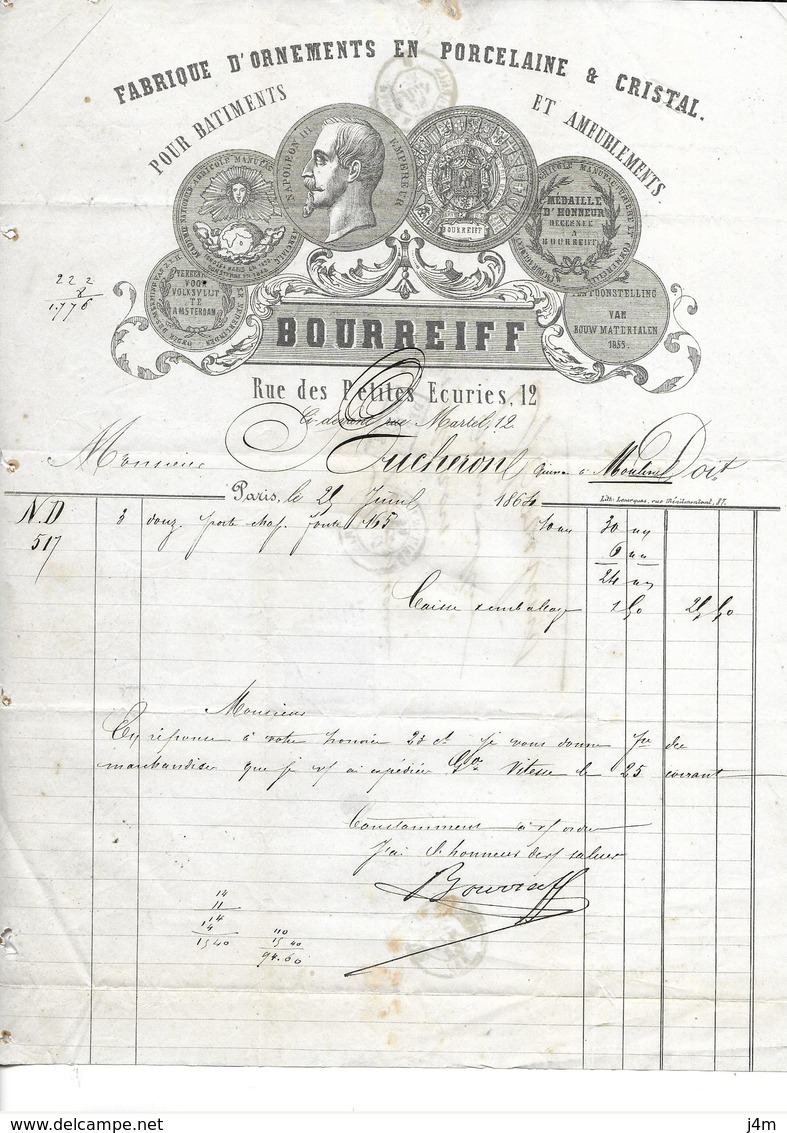 FABRIQUE D'ORNEMENTS EN PORCELAINE & CRISTAL.
POUR BATIMENTS ET AMEUBLEMENTS.
NAPOLEON III EMPEREUR
BOURREIFF
MEDAILLE
D'HONNEUR
DECERNÉE
A
BOURREIFF
VOOR
VOLKSVLIJT
TE
AMSTERDAM
TENTOONSTELLING
VAN
BOUW MATERIALEN
1855.
222
8
1.776
BOURREIFF
Rue des Petites Ecuries, 12
Ci-devant rue Martel, 12.
Monsieur Fucheron à Moulins Doit
Paris, le 25 Juin 1864
Lith. Lourques, rue Ménilmontant, 87.
N.D 3 douz. porte chap. fonte 165 10 30
517
6
24
Caisse & emballage 1 50 25 50
Monsieur
En réponse à votre honorée 23 ct je vous donne fre des
marchandises que je v/ ai expédiées Gde Vitesse le 25 courant
Constamment à v/ ordres
J'ai l'honneur de v/ saluer
Bourreiff
14
11
14
14
15 40
110
15 40
94.60
j4m